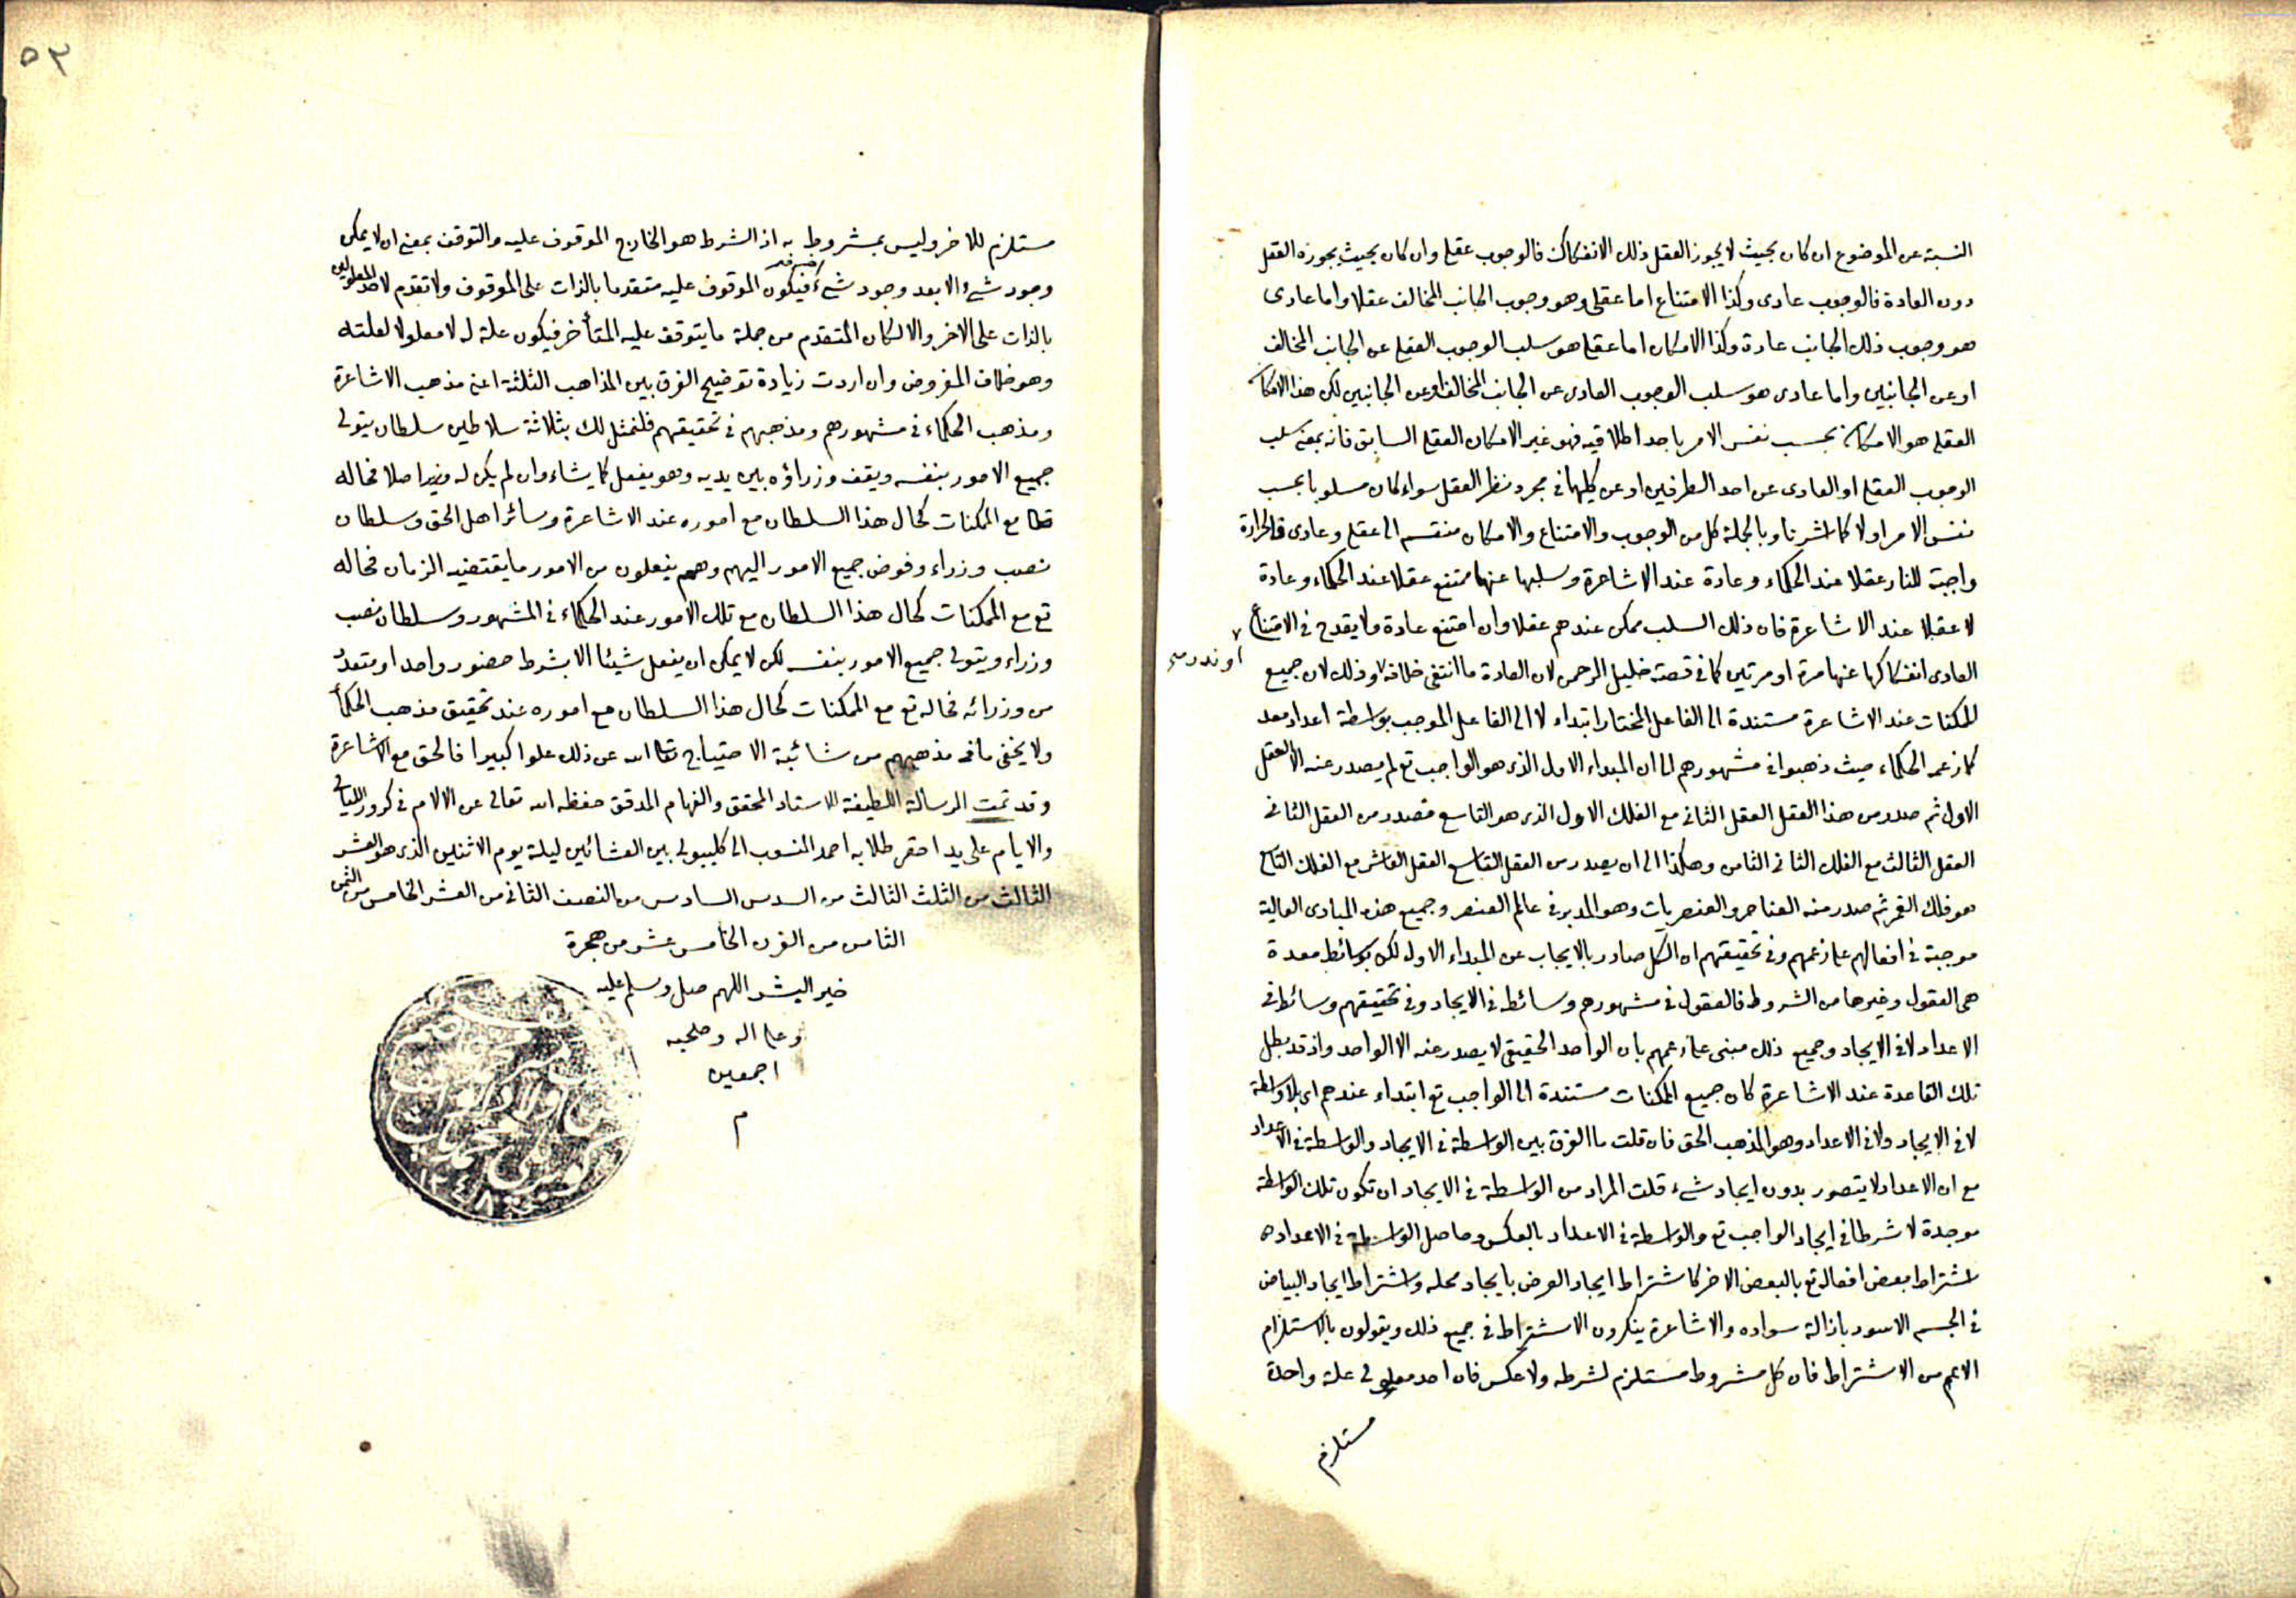 النسبة عن الموضوع ان كان بحيث لا يجوز العقل ذلك الانفكاك فالوجوب عقلى وان كان بحيث يجوزه العقل
دون العادة فالوجوب عادى وكذا الامتناع اما عقلى وهو وجوب الجانب المخالف عقلا واما عادى
هو وجوب ذلك الجانب عادة وكذا الامكان اما عقلى هو سلب الوجوب العقلى عن الجانب المخالف
او عن الجانبين واما عادى هو سلب الوجوب العادى عن الجانب المخالف او عن الجانبين لكن هذا الامكان
العقلى هو الامكان بحسب نفس الامر باحد اطلاقيه فهو غير الامكان العقلى السابق فانه بمعنى سلب
الوجوب العقلى او العادى عن احد الطرفين او عن كليهما فى مجرد نظر العقل سواء كان مسلوبا بحسب
نفس الامر اولا كما اشرنا وبالجملة كل من الوجوب والامتناع والامكان منقسم الى عقلى وعادى فالحرارة
واجبة للنار عقلا عند الحكماء وعادة عند الاشاعرة وسلبها عنها ممتنع عقلا عند الحكماء وعادة
لا عقلا عند الاشاعرة فان ذلك السلب ممكن عندهم عقلا وان امتنع عادة ولا يقدح فى الامتناع
العادى انفكاكها عنها مرة او مرتين كما فى قصة خليل الرحمن لان العادة ما انتفى خلافه وذلك لان جميع
او ندر
الممكنات عند الاشاعرة مستندة الى الفاعل المختار ابتداء لا الى الفاعل الموجب بواسطة اعداد معد
كما زعم الحكماء حيث ذهبوا فى مشهورهم الى ان المبداء الاول الذى هو الواجب تع لم يصدر عنه الا العقل
الاول ثم صدر من هذا العقل العقل الثانى مع الفلك الاول الذى هو التاسع فصدر من العقل الثانى
العقل الثالث مع الفلك الثانى الثامن وهكذا الى ان يصدر من العقل التاسع العقل العاشر مع الفلك التاسع
هو فلك القمر ثم صدر منه العناصر والعنصريات وهو المدبر فى عالم العنصر وجميع هذه المبادى العالية
موجبة فى افعالهم على زعمهم وفى تحقيقهم ان الكل صادر بالايجاب عن المبداء الاول لكن بوسائط معدة
هى العقول وغيرها من الشروط فالعقول فى مشهورهم وسائط فى الايجاد وفى تحقيقهم وسائط فى
الاعداد لا فى الايجاد وجميع ذلك مبنى على زعمهم بان الواحد الحقيقى لا يصدر عنه الا الواحد واذ قد بطل
تلك القاعدة عند الاشاعرة كان جميع الممكنات مستندة الى الواجب تع ابتداء عندهم اى بلا واسطة
لا فى الايجاد ولا فى الاعداد وهو المذهب الحق فان قلت ما الفرق بين الواسطة فى الايجاد والواسطة فى الاعداد
مع ان الاعداد لا يتصور بدون ايجاد شىء قلت المراد من الواسطة فى الايجاد ان تكون تلك الواسطة
موجدة لا شرطا فى ايجاد الواجب تع والواسطة فى الاعداد بالعكس وحاصل الواسطة فى الاعداد
اشتراط بعض افعاله تع بالبعض الاخر كاشتراط ايجاد العرض بايجاد محله واشتراط ايجاد البياض
فى الجسم الاسود بازالة سواده والاشاعرة ينكرون الاشتراط فى جميع ذلك ويقولون بالاستلزام
الاعم من الاشتراط فان كل مشروط مستلزم لشرطه ولا عكس فان احد معلولى علة واحدة
مستلزم
٥٣
مستلزم للاخر وليس بمشروط به اذ الشرط هو الخارج الموقوف عليه والتوقف بمعنى ان لا يمكن
وجود شىء الا بعد وجود شىء فيكون الموقوف عليه متقدما بالذات على الموقوف ولا تقدم لاحد المعلولين
بالذات على الاخر والا لكان المتقدم من جملة ما يتوقف عليه المتأخر فيكون علة له لا معلولا لعلته
وهو خلاف المفروض وان اردت زيادة توضيح الفرق بين المذاهب الثلثة اعنى مذهب الاشاعرة
ومذهب الحكماء فى مشهورهم ومذهبهم فى تحقيقهم فلنمثل لك بثلاثة سلاطين سلطان يتولى
جميع الامور بنفسه ويقف وزراؤه بين يديه وهو يفعل كما يشاء وان لم يكن له وزير اصلا فحاله
تعا مع الممكنات كحال هذا السلطان مع اموره عند الاشاعرة وسائر اهل الحق وسلطان
نصب وزراء وفوض جميع الامور اليهم وهم يفعلون من الامور ما يقتضيه الزمان فحاله
تع مع الممكنات كحال هذا السلطان مع تلك الامور عند الحكماء فى المشهور وسلطان نصب
وزراء ويتولى جميع الامور بنفسه لكن لا يمكن ان يفعل شيئا الا بشرط حضور واحد او متعدد
من وزرائه فحاله تع مع الممكنات كحال هذا السلطان مع اموره عند تحقيق مذهب الحكماء
ولا يخفى ما فى مذهبهم من شائبة الاحتياج تعا الله عن ذلك علوا كبيرا فالحق مع الاشاعرة
وقد تمت الرسالة اللطيفة للاستاد المحقق والفهام المدقق حفظه الله تعالى عن الالام فى كرور الليالى
والايام على يد احقر طلابه احمد المنسوب الى كليبولى بين العشائين ليلة يوم الاثنين الذى هو العشر
الثالث من الثلث الثالث من السدس السادس من النصف الثانى من العشر الخامس من الثمن
الثامن من القرن الخامس عشر من هجرة
خير البشر اللهم صل وسلم عليه
وعلى اله وصحبه
اجمعين
م
١٢٤٨